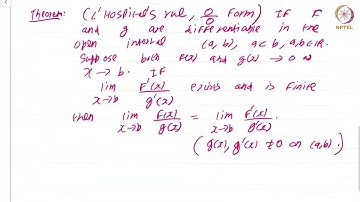 Theorem: (L'Hospital's rule, 0/0 form) If F
and g are differentiable in the
open interval (a, b), a < b, a, b ∈ ℝ.
Suppose both F(x) and g(x) → 0 as
x → b. If
lim x→b F'(x)/g'(x) exists and is finite
then lim x→b F(x)/g(x) = lim x→b F'(x)/g'(x).
(g(x), g'(x) ≠ 0 on (a,b).)
NPTEL